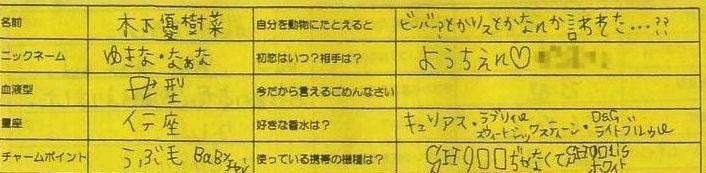 名前 木下優樹菜 自分を動物にたとえると ビーバー?とかリスとかなんか言われた…??
ニックネーム ゆきな・なぁな 初恋はいつ?相手は? ようちえん♡
血液型 型 今だから言えるごめんなさい
星座 イテ座 好きな香水は? キュリアス・ラブリイル D&G
スウィートシックスティーン・ライトブルウ
チャームポイント うぶ毛 BaBy 使っている携帯の機種は? SH900じゃなくて
ホワイト